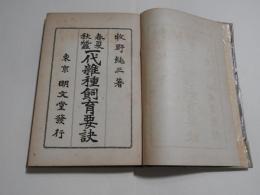 牧野鈍三著
春夏
秋蠶
一代雜種飼育要訣
東京 明文堂發行